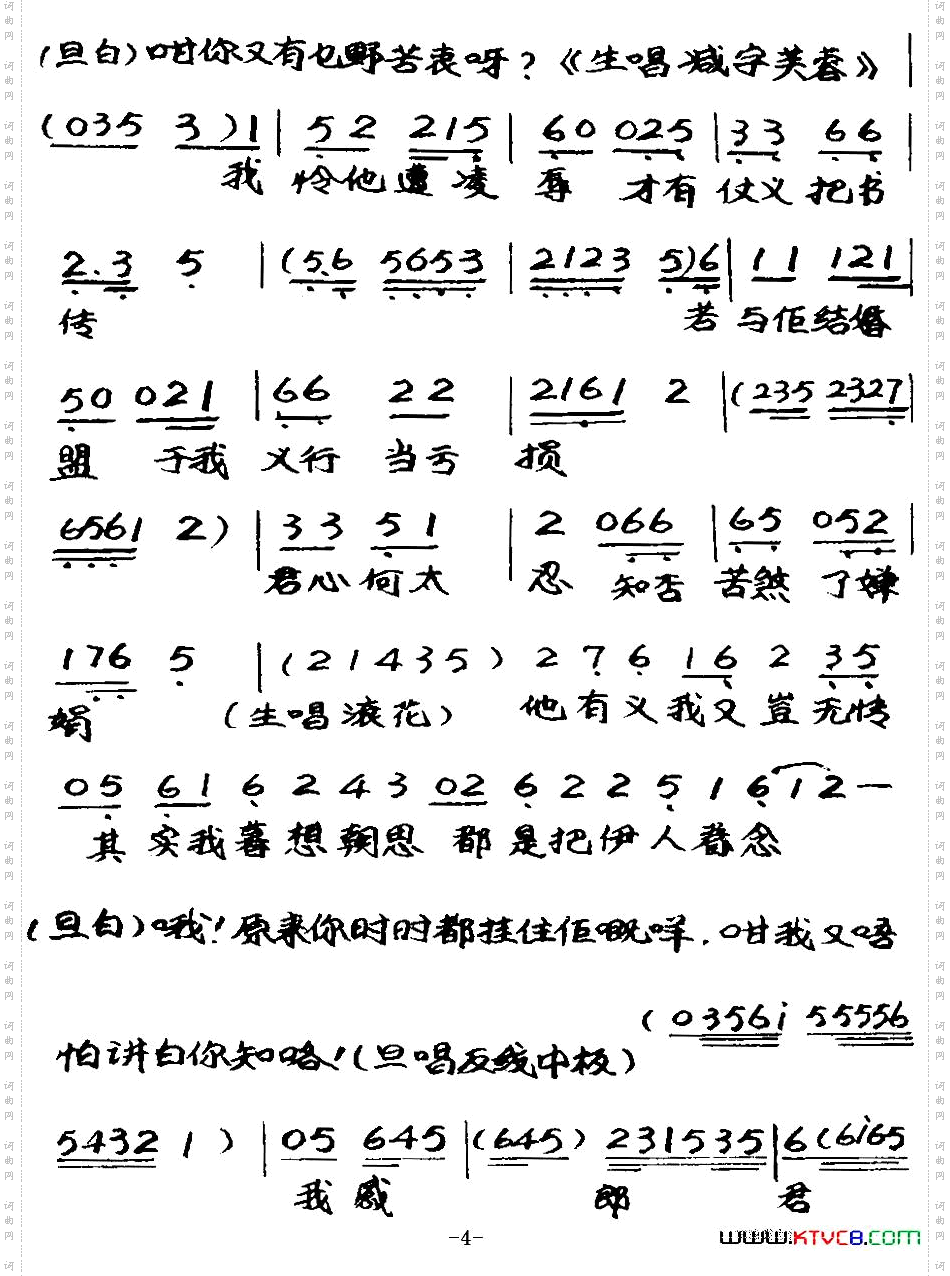 (旦白)咁你又有乜野苦衷呀?《生唱减字芙蓉》
(035 3)1| 52 215| 60 025| 33 66|
我 怜他遭凌 辱 才有 仗义 把书
2.3 5 |(5.6 5653| 2123 5)6| 11 121|
传 若 与佢结婚
50 021| 66 22| 2161 2 |(235 2327|
盟 于我 义行 当亏 损
6561 2)| 33 51| 2 066| 65 052|
君心何太 忍 知否 苦煞 了婵
176 5 |(21435) 2 7 6 16 2 35
娟 (生唱滚花) 他有义我又岂无情
05 61 6 2 4 3 02 6 2 2 5 1 6 1 2 —
其 实我暮想朝思 都是把伊人眷念
(旦白)哦!原来你时时都挂住佢嘅咩,咁我又唔
(0356i 55556
怕讲白你知咯!(旦唱反线中板)
5432 1)| 05 645|(645) 231535| 6(6i65
我感 郎 君
-4-
WWW.KTVC8.COM
词曲网